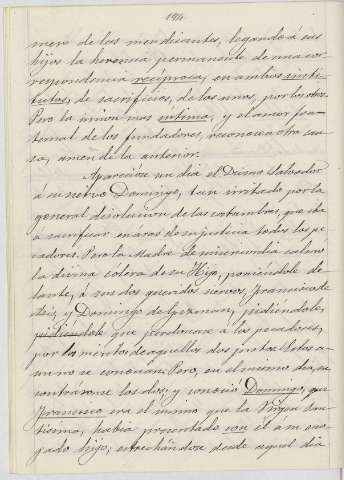 194
mero de los mendicantes, legando á sus
hijos la herencia permanente de una cor-
respondencia recíproca, en ambos insti-
tutos, de sacrificios, de los unos, por los otros.
Pero la union mas íntima, y el amor fra-
ternal de los fundadores, reconoce otra cau-
sa, amen de la anterior.
Aparecióse un dia el Divino Salvador
á su siervo Domingo, tan irritado por la
general disolucion de las costumbres, que iba
á sacrificar en aras de su justicia todos los pe-
cadores. Pero la Madre de misericordia calmó
la divina colera de su Hijo, poniéndole de-
lante, á sus dos queridos siervos, Francisco de
Asis, y Domingo de Guzman, pidiéndole,
pidiéndole que perdonara a los pecadores,
por los méritos de aquellos dos justos. Estos a-
un no se conocian. Pero, en el mismo dia, en-
contráronse los dos; y conoció Domingo, que
Francisco era el mismo que la Virgen San-
tísima, habia presentado con él a su eno-
jado hijo; estrechándose desde aquel dia